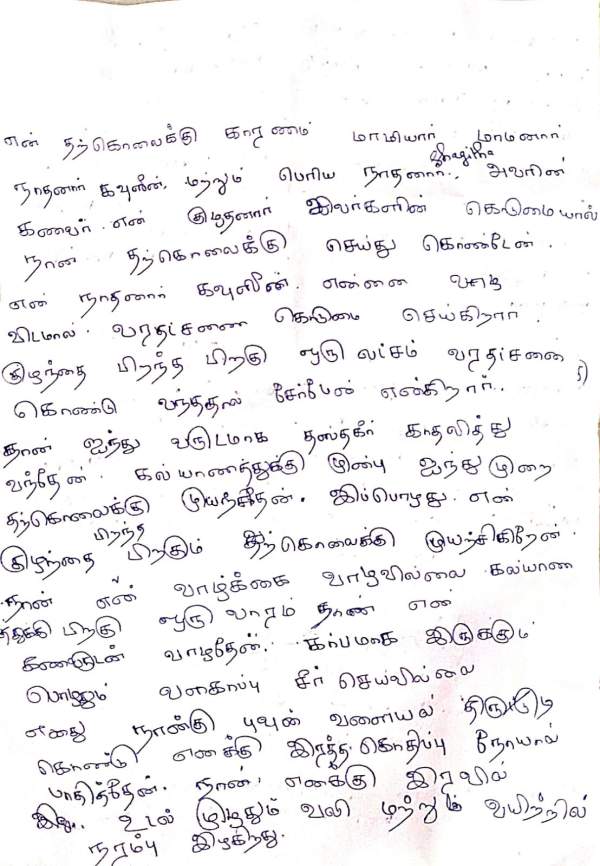 என் தற்கொலைக்கு காரணம் மாமியார் மாமனார்
நாதனார் கவுஸீன், மற்றும் பெரிய நாதனார்., அவரின்
கணவர். என் இவர்களின் கெடுமையால்
நான் தற்கொலைக்கு செய்து கொண்டேன்.
என் நாதனார் கவுஸீன். என்னை வாழ
விடமால். வரதட்சணை கெடுமை செய்கிறார்.
குழந்தை பிறந்த பிறகு ஒரு லட்சம் வரதட்சனை
கொண்டு வந்ததால் சேர்பேன் என்கிறார்.
நான் ஐந்து வருடமாக தஸ்தகீர் காதலித்து
வந்தேன். கல்யாணத்துக்கு முன்பு ஐந்து முறை
தற்கொலைக்கு முயற்சித்தேன். இப்பொழுது. என்
குழந்தை பிறந்த பிறகும் தற்கொலைக்கு முயற்சிகிறேன்.
நான் என் வாழ்க்கை வாழவில்லை கல்யாண
த்துக்கு பிறகு ஒரு வாரம் தான் என்
கணவருடன் வாழதேன். கர்பமாக இருக்கும்
பொழுதும் வளகாப்பு சீர் செய்வில்லை
எனது நான்கு பவுன் வளையல் திருடி
கொண்டு எனக்கு இரத்த கொதிப்பு நோயால்
பாதித்தேன். நான். எனக்கு இரவில்
உடல் முழுதும் வலி மற்றும் வயிற்றில்
நரம்பு இழகிறது.